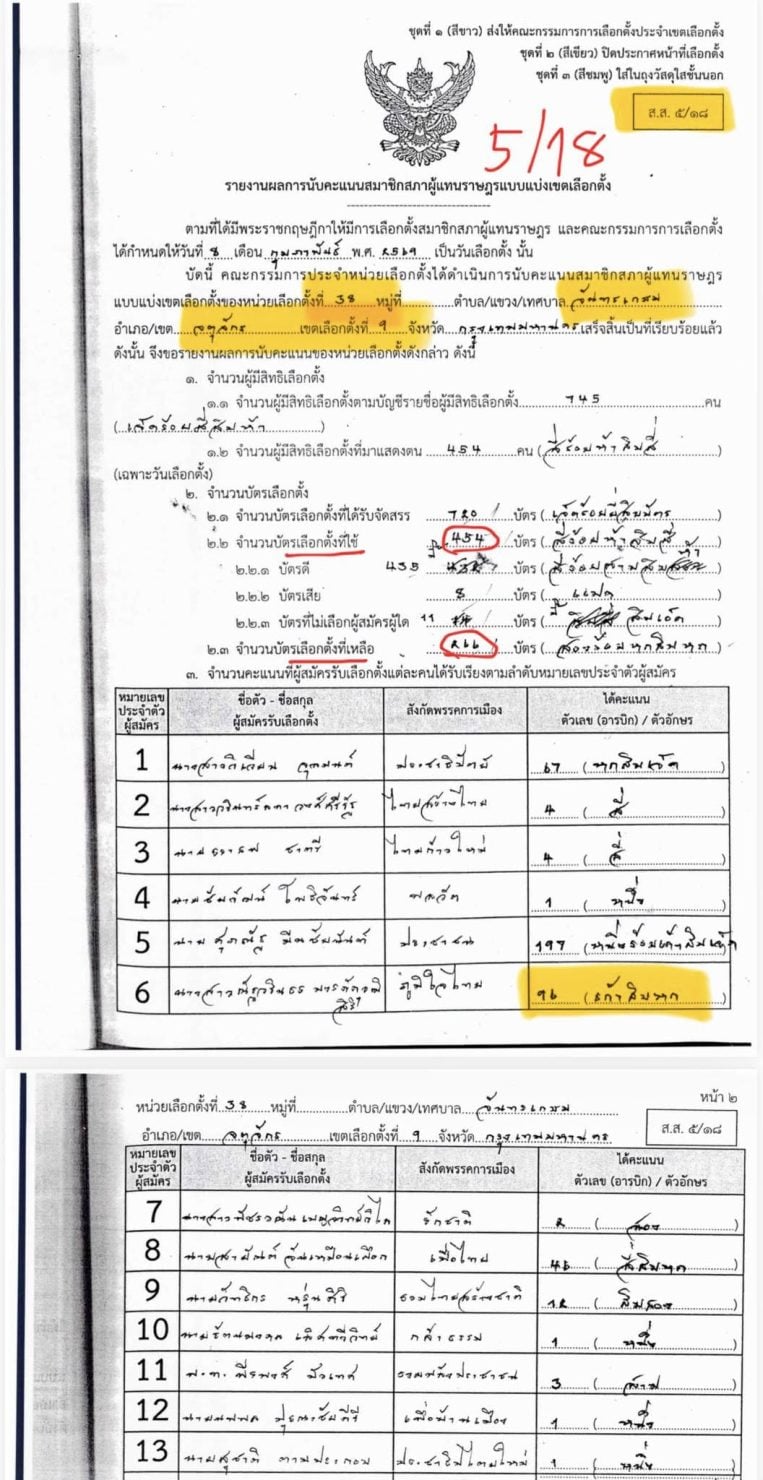 ชุดที่ ๑ (สีขาว) ส่งให้คณะกรรมการการเลือกตั้งประจำเขตเลือกตั้ง
ชุดที่ ๒ (สีเขียว) ปิดประกาศหน้าที่เลือกตั้ง
ชุดที่ ๓ (สีชมพู) ใส่ในถุงวัสดุใสชั้นนอก
ส.ส. ๕/๑๘
5/18
รายงานผลการนับคะแนนสมาชิกสภาผู้แทนราษฎรแบบแบ่งเขตเลือกตั้ง
ตามที่ได้มีพระราชกฤษฎีกาให้มีการเลือกตั้งสมาชิกสภาผู้แทนราษฎร และคณะกรรมการการเลือกตั้ง
ได้กำหนดให้วันที่ 8 เดือน กุมภาพันธ์ พ.ศ. 2569 เป็นวันเลือกตั้ง นั้น
บัดนี้ คณะกรรมการประจำหน่วยเลือกตั้งได้ดำเนินการนับคะแนนสมาชิกสภาผู้แทนราษฎร
แบบแบ่งเขตเลือกตั้งของหน่วยเลือกตั้งที่ 38 หมู่ที่ ตำบล/แขวง/เทศบาล จันทรเกษม
อำเภอ/เขต จตุจักร เขตเลือกตั้งที่ 9 จังหวัด กรุงเทพมหานคร เสร็จสิ้นเป็นที่เรียบร้อยแล้ว
ดังนั้น จึงขอรายงานผลการนับคะแนนของหน่วยเลือกตั้งดังกล่าว ดังนี้
๑. จำนวนผู้มีสิทธิเลือกตั้ง
๑.๑ จำนวนผู้มีสิทธิเลือกตั้งตามบัญชีรายชื่อผู้มีสิทธิเลือกตั้ง 745 คน
(เจ็ดร้อยสี่สิบห้า)
๑.๒ จำนวนผู้มีสิทธิเลือกตั้งที่มาแสดงตน 454 คน (สี่ร้อยห้าสิบสี่)
(เฉพาะวันเลือกตั้ง)
๒. จำนวนบัตรเลือกตั้ง
๒.๑ จำนวนบัตรเลือกตั้งที่ได้รับจัดสรร 720 บัตร (เจ็ดร้อยยี่สิบบัตร)
๒.๒ จำนวนบัตรเลือกตั้งที่ใช้ 454 บัตร (สี่ร้อยห้าสิบสี่)
๒.๒.๑ บัตรดี 435 บัตร (สี่ร้อยสามสิบห้า)
๒.๒.๒ บัตรเสีย 8 บัตร (แปด)
๒.๒.๓ บัตรที่ไม่เลือกผู้สมัครผู้ใด 11 บัตร (สิบเอ็ด)
๒.๓ จำนวนบัตรเลือกตั้งที่เหลือ 266 บัตร (สองร้อยหกสิบหก)
๓. จำนวนคะแนนที่ผู้สมัครรับเลือกตั้งแต่ละคนได้รับเรียงตามลำดับหมายเลขประจำตัวผู้สมัคร
หมายเลขประจำตัวผู้สมัคร ชื่อตัว - ชื่อสกุล ผู้สมัครรับเลือกตั้ง สังกัดพรรคการเมือง ได้คะแนน ตัวเลข (อารบิก) / ตัวอักษร
1 ประชาธิปัตย์ 67 (หกสิบเจ็ด)
2 ไทยสร้างไทย 4 (สี่)
3 ไทยก้าวใหม่ 4 (สี่)
4 โพธิจันทร์ พลวัต 1 (หนึ่ง)
5 นาย ศุภณัฐ มีนชัยนันท์ ประชาชน 197 (หนึ่งร้อยเก้าสิบเจ็ด)
6 ภูมิใจไทย 96 (เก้าสิบหก)
หน่วยเลือกตั้งที่ 38 หมู่ที่ ตำบล/แขวง/เทศบาล จันทรเกษม หน้า ๒
อำเภอ/เขต จตุจักร เขตเลือกตั้งที่ 9 จังหวัด กรุงเทพมหานคร ส.ส. ๕/๑๘
หมายเลขประจำตัวผู้สมัคร ชื่อตัว - ชื่อสกุล ผู้สมัครรับเลือกตั้ง สังกัดพรรคการเมือง ได้คะแนน ตัวเลข (อารบิก) / ตัวอักษร
7 รักชาติ 2 (สอง)
8 เพื่อไทย 46 (สี่สิบหก)
9 รวมไทยสร้างชาติ 12 (สิบสอง)
10 กล้าธรรม 1 (หนึ่ง)
11 รวมพลังประชาชน 3 (สาม)
12 เพื่อบ้านเมือง 1 (หนึ่ง)
13 นายสุชาติ ประชาธิปไตยใหม่ 1 (หนึ่ง)